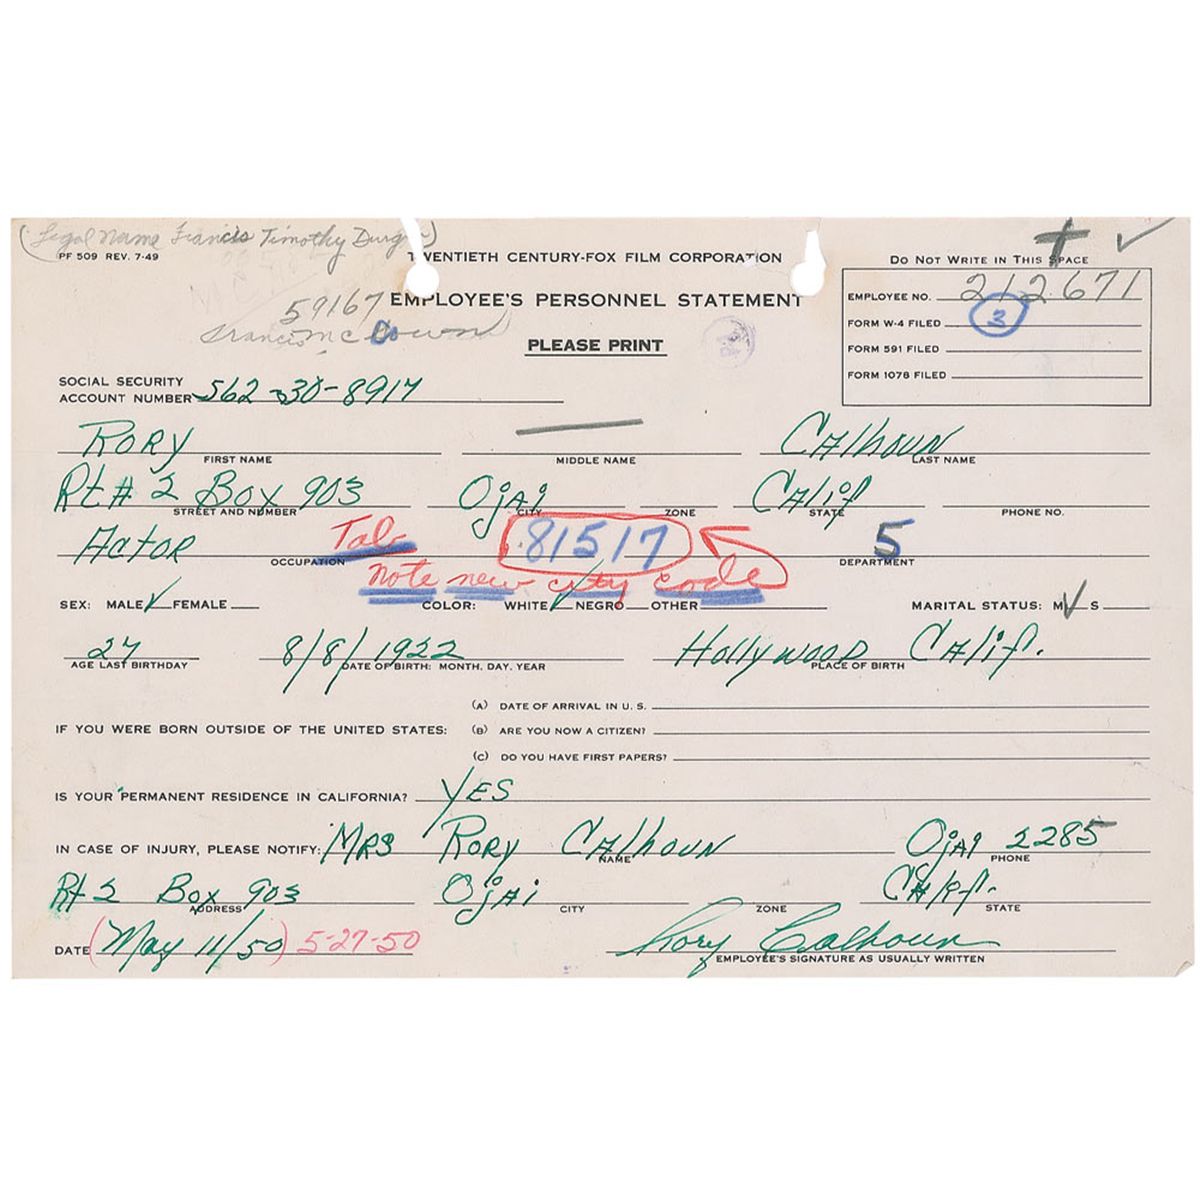 (Legal Name Francis Timothy Durgin)
PF 509 REV. 7-49
TWENTIETH CENTURY-FOX FILM CORPORATION
DO NOT WRITE IN THIS SPACE
59167
EMPLOYEE'S PERSONNEL STATEMENT
EMPLOYEE NO. 212671
Francis McCown
FORM W-4 FILED 3
PLEASE PRINT
FORM 591 FILED
FORM 1078 FILED
SOCIAL SECURITY
ACCOUNT NUMBER 562-30-8917
RORY CALhOUN
FIRST NAME MIDDLE NAME LAST NAME
Rt # 2 Box 903 OjAi CAlif
STREET AND NUMBER CITY ZONE STATE PHONE NO.
ActOR Tab 81517 5
OCCUPATION DEPARTMENT
Note new city code
SEX: MALE ✓ FEMALE COLOR: WHITE ✓ NEGRO OTHER MARITAL STATUS: M ✓ S
27 8/8/1922 HollywOOD CAlif.
AGE LAST BIRTHDAY DATE OF BIRTH: MONTH, DAY, YEAR PLACE OF BIRTH
(A) DATE OF ARRIVAL IN U. S.
IF YOU WERE BORN OUTSIDE OF THE UNITED STATES: (B) ARE YOU NOW A CITIZEN?
(C) DO YOU HAVE FIRST PAPERS?
IS YOUR PERMANENT RESIDENCE IN CALIFORNIA? YES
IN CASE OF INJURY, PLEASE NOTIFY: MRS RORY CAlhOUN OjAi 2285
NAME PHONE
Rt 2 Box 903 OjAi CAlif.
ADDRESS CITY ZONE STATE
DATE (May 11/50) 5-27-50 Rory Calhoun
EMPLOYEE'S SIGNATURE AS USUALLY WRITTEN